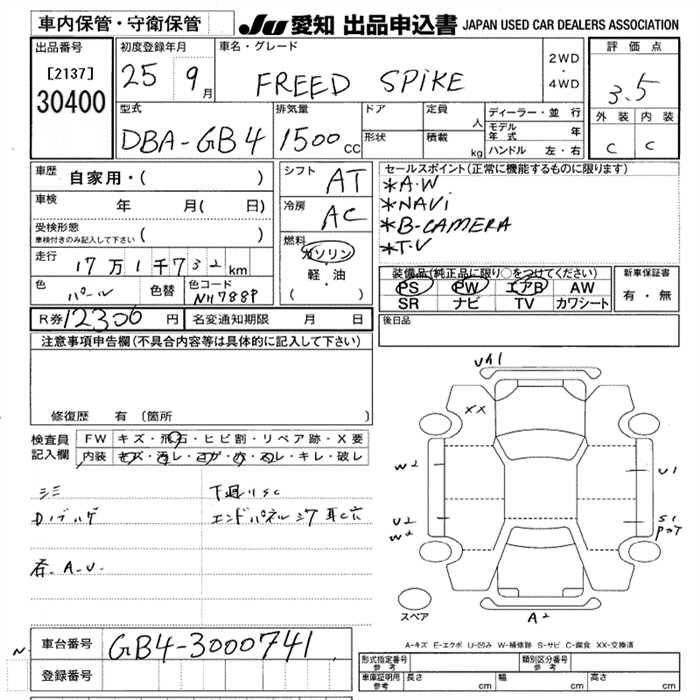 車内保管・守衛保管
JU 愛知 出品申込書 JAPAN USED CAR DEALERS ASSOCIATION
出品番号
[2137]
30400
初度登録年月
25 9月
車名・グレード
FREED SPIKE
2WD
・
4WD
評価点
3.5
外装 内装
C C
型式
DBA-GB4
排気量
1500cc
ドア
形状
定員 人
積載 kg
ディーラー・並行
モデル年式 年
ハンドル 左・右
車歴 自家用・( )
車検 年 月( 日)
受検形態
車検付きのみ記入して下さい ( )
走行 17万1千732km
色 パール 色替 色コード NH788P
シフト AT
冷房 AC
燃料 ガソリン
・
軽・油
( )
セールスポイント(正常に機能するものに限ります)
*A.W
*NAVi
*B-CAMERA
*T.V
装備品(純正品に限り○をつけてください)
PS PW エアB AW
SR ナビ TV カワシート
新車保証書
有・無
R券 12300円 名変通知期限 月 日
後日品
注意事項申告欄(不具合内容等は具体的に記入して下さい)
修復歴 有 〔箇所 〕
検査員記入欄
FW キズ・飛石・ヒビ割・リペア跡・X要
内装 キズ・汚レ・コゲ・穴・スレ・キレ・破レ
シミ 下廻りSC
Dノブハゲ
A.U.
UA1
XX
W2
U2
W2
U1
S1
A2
スペア
A-キズ E-エクボ U-凹み W-補修跡 S-サビ C-腐食 XX-交換済
N
車台番号 GB4-3000741
登録番号
形式指定番号 参考 類別区分番号 参考
車庫証明用 参考 長さ cm 幅 cm 高さ cm